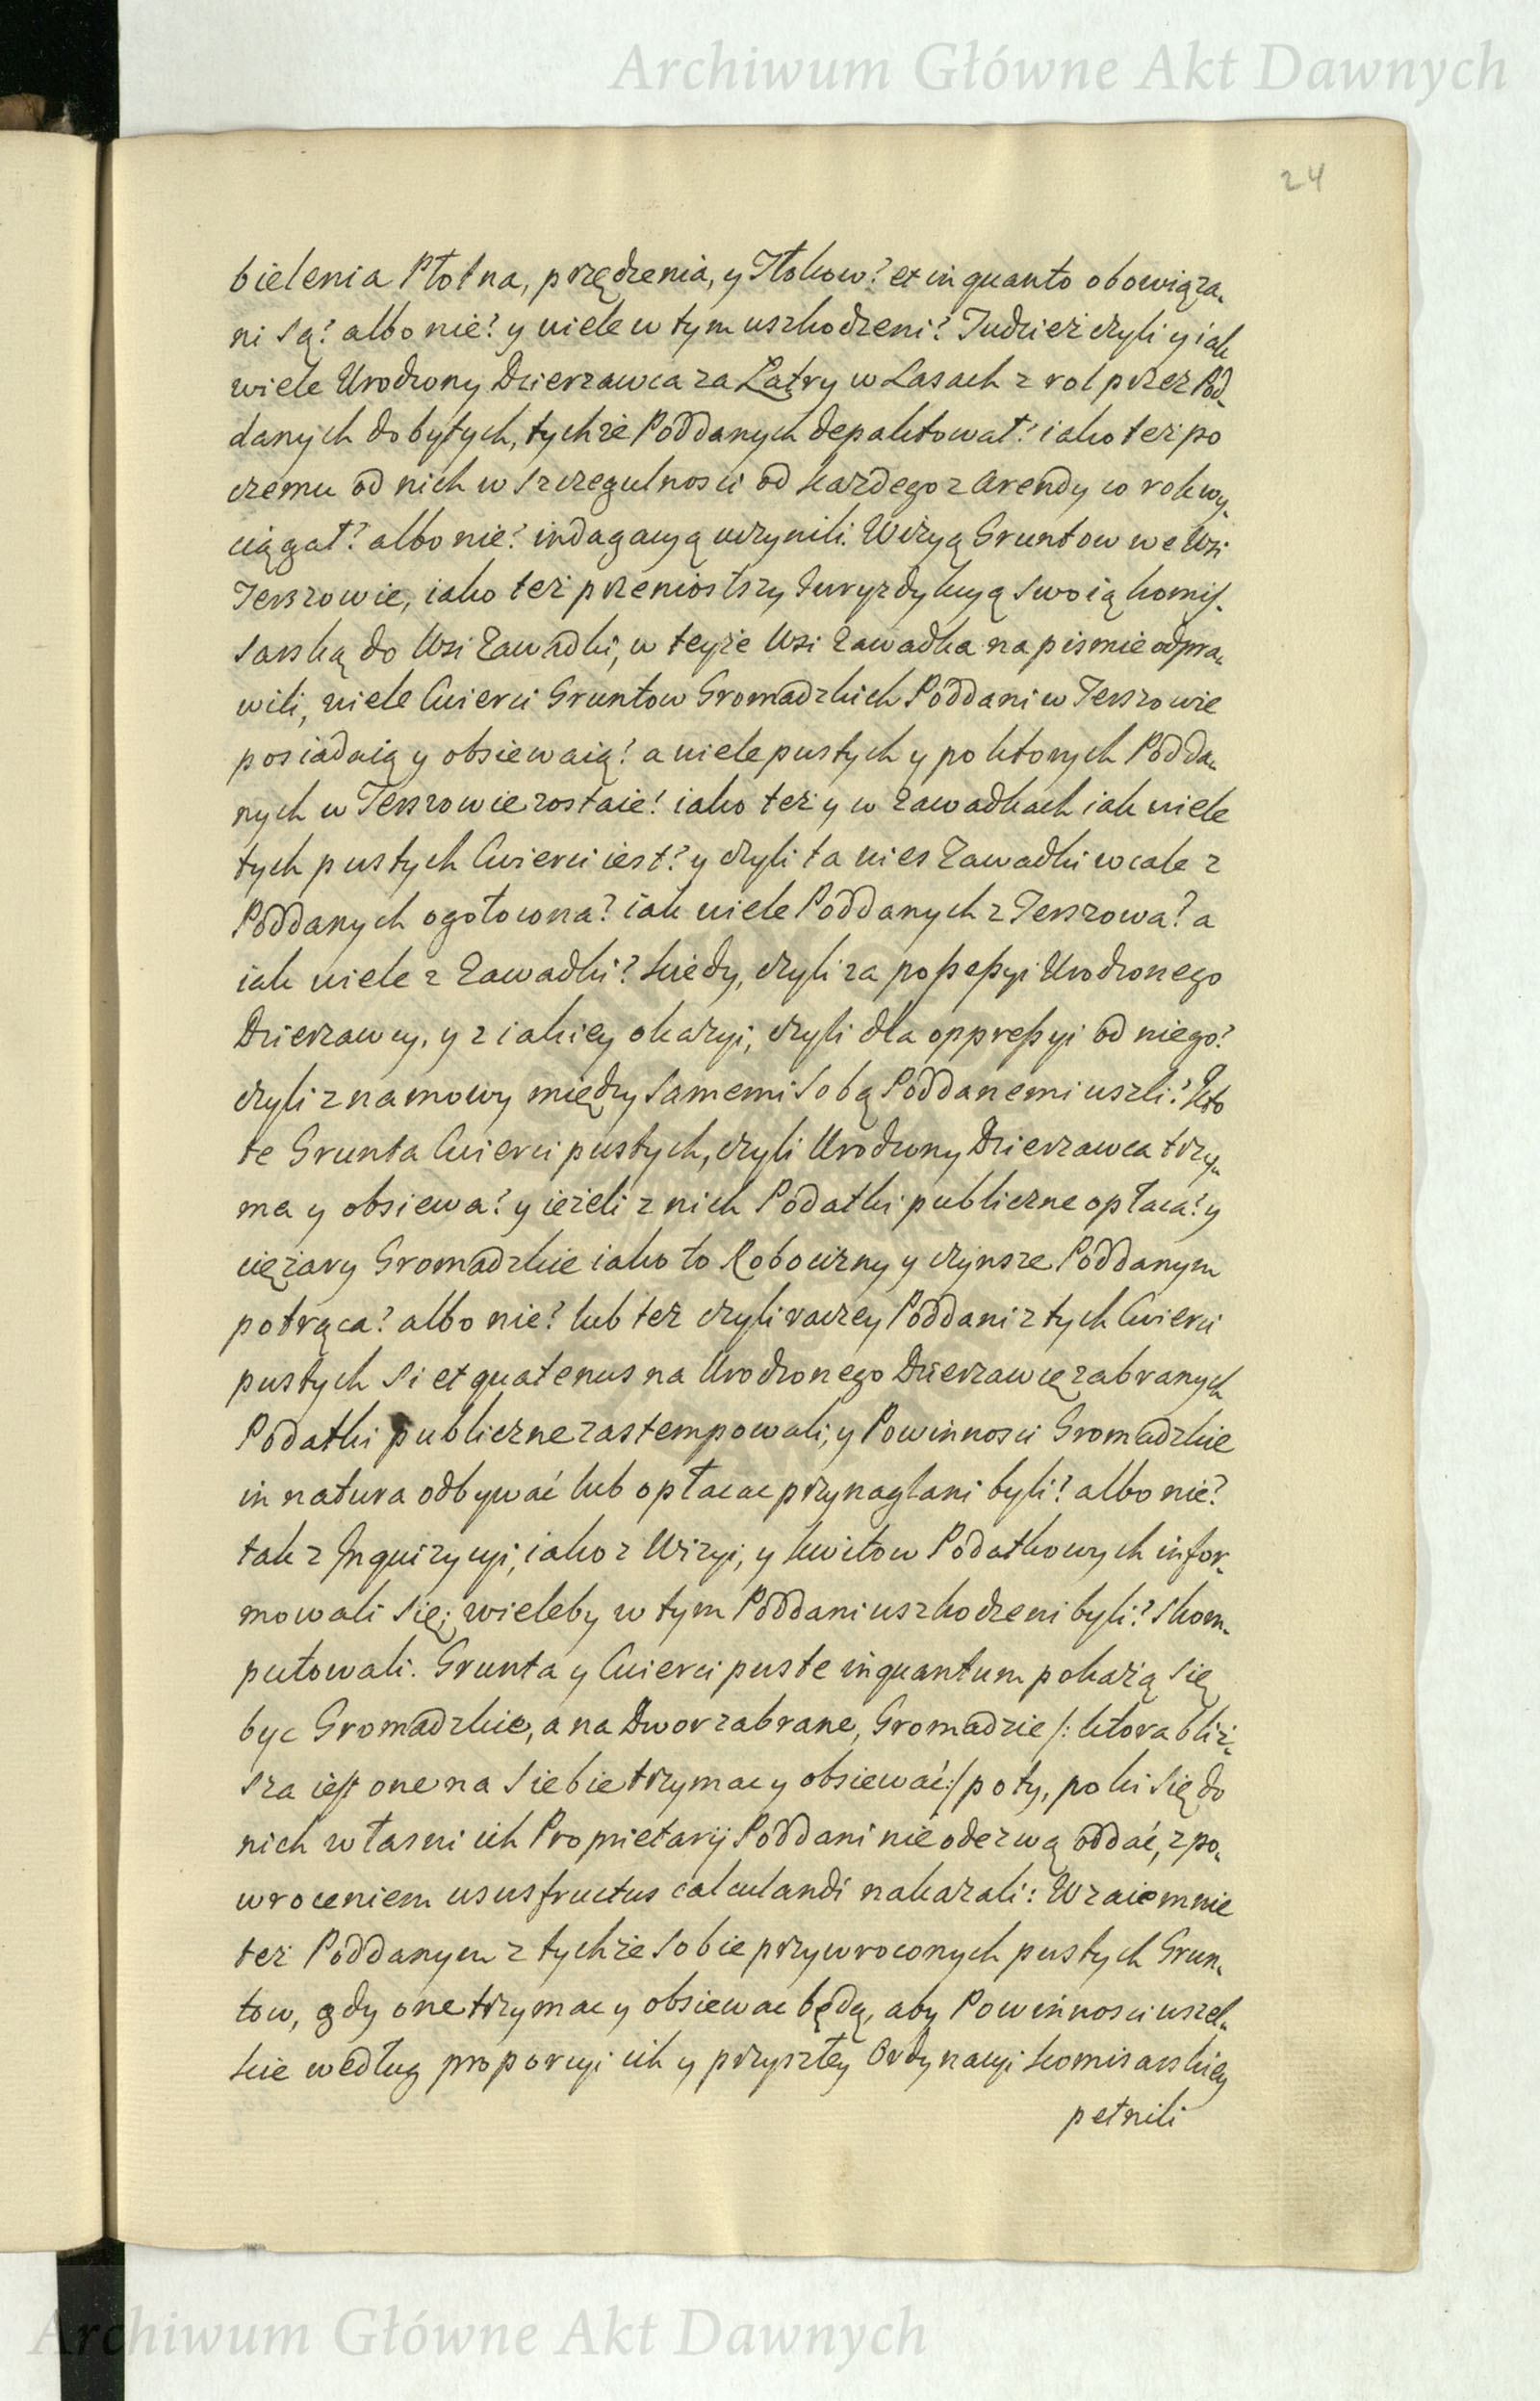 Archiwum Główne Akt Dawnych
24
bielenia Płotna, przędzenia, y Tłokow? et in quanto obowiąza„
ni są? albo nie? y wiele w tym uszkodzeni? Tudzież czyli y iak
wiele Urodzony Dzierzawca za Łatry w Lasach z rol przez Pod„
danych dobytych, tychże Poddanych depaktował? iako też po
czemu od nich w szczegulnosci od każdego z Arendy co rok wy„
ciągał? albo nie? indagacyą uczynili. Wizyą Gruntow we Wsi
Terszowie, iako też przeniosłszy Juryzdykcyą swoią komis„
sarską do Wsi Zawadki, w teyże Wsi Zawadka na pismie odpra„
wili, wiele Cwierci Gruntow Gromadzkich Poddani w Terszowie
posiadaią y obsiewaią? a wiele pustych y po ktorych Podda„
nych w Terszowie zostaie? iako też y w Zawadkach iak wiele
tych pustych Cwierci iest? y czyli ta wies Zawadki wcale z
Poddanych ogołocona? iak wiele Poddanych z Terszowa? a
iak wiele z Zawadki? kiedy, czyli za possessyi Urodzonego
Dzierzawcy, y z iakiey okazyi, czyli dla oppressyi od niego?
czyli z namowy między samemi sobą Poddanemi uszli? Kto
te Grunta Cwierci pustych, czyli Urodzony Dzierzawca trzy„
ma y obsiewa? y ieżeli z nich Podatki publiczne opłaca? y
ciężary Gromadzkie iako to Robocizny y czynsze Poddanym
potrąca? albo nie? lub też czyli raczey Poddani z tych Cwierci
pustych si et quatenus na Urodzonego Dzierzawcę zabranych
Podatki publiczne zastempowali, y Powinnosci Gromadzkie
in natura odbywać lub opłacac przynaglani byli? albo nie?
tak z Inquizycyi, iako z Wizyi, y kwitow Podatkowych infor„
mowali się; wieleby w tym Poddani uszkodzeni byli? skom„
putowali. Grunta y Cwierci puste inquantum pokażą się
byc Gromadzkie, a na Dwor zabrane, Gromadzie /: ktora bliż„
sza iest one na siebie trzymac y obsiewać :/ poty, poki się do
nich własni ich Proprietarij Poddani nie odezwą oddać, z po„
wroceniem ususfructus calculandi nakazali: Wzaiemnie
też Poddanym z tychże sobie przywroconych pustych Grun„
tow, gdy one trzymac y obsiewac będą, aby Powinnosci wszel„
kie według proporcyi ich y przyszłey Ordynacyi komisarskiey
pełnili
Archiwum Główne Akt Dawnych